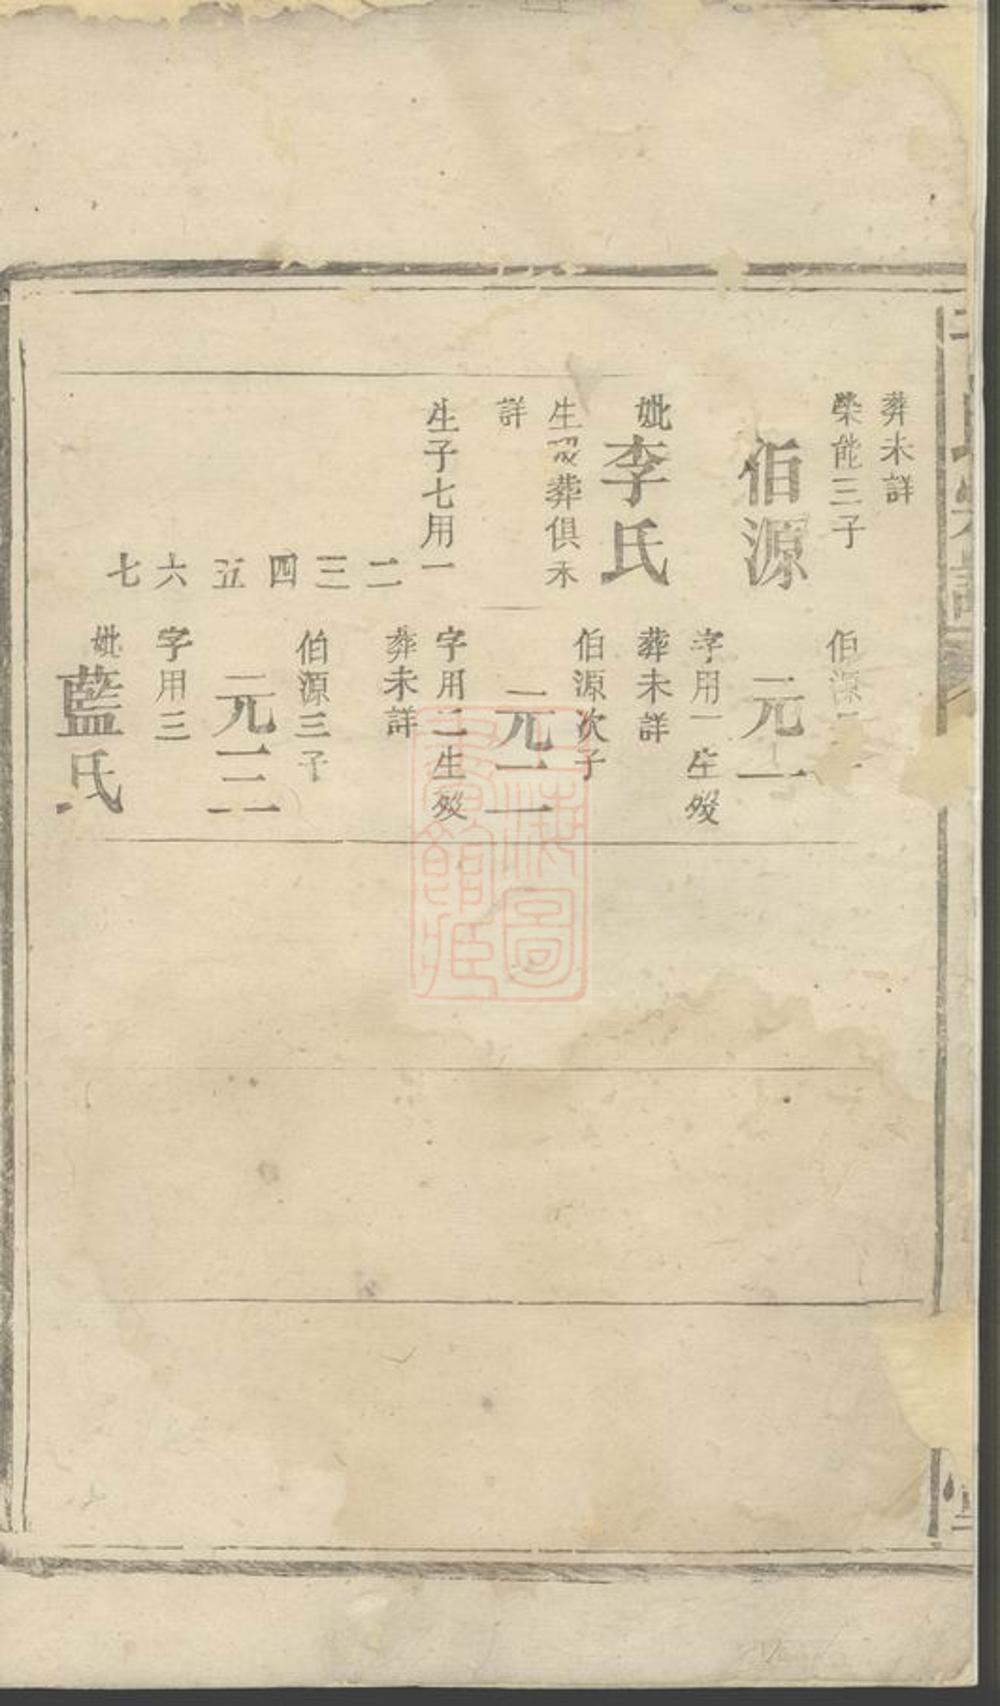 葬未詳
榮能三子
伯源
妣李氏
生殁葬俱未
詳
生子七用一
二
三
四
五
六
七
伯源
元一
字用一生殁
葬未詳
伯源次子
元二
字用二生殁
葬未詳
伯源三子
元三
字用三
妣藍氏